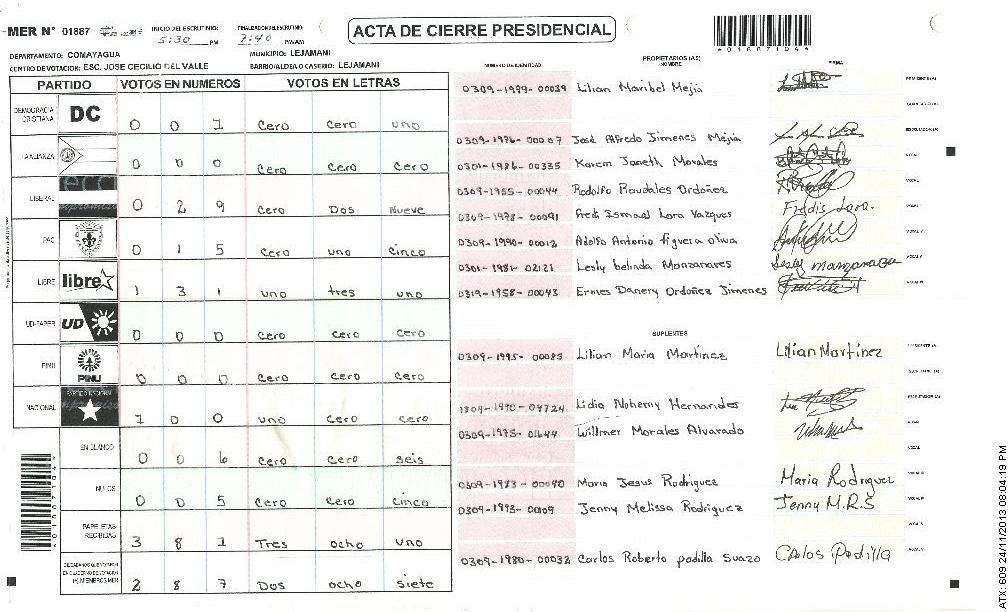 MER N° 01887 INICIO DEL ESCRUTINIO: 5:30 PM FINALIZACION ESCRUTINIO: 7:40 PM/AM ACTA DE CIERRE PRESIDENCIAL
DEPARTAMENTO: COMAYAGUA MUNICIPIO: LEJAMANI
CENTRO DE VOTACION: ESC. JOSE CECILIO DEL VALLE BARRIO/ALDEA O CASERIO: LEJAMANI
PARTIDO VOTOS EN NUMEROS VOTOS EN LETRAS
DEMOCRACIA CRISTIANA DC 0 0 1 cero cero uno
LA ALIANZA 0 0 0 cero cero cero
LIBERAL 0 2 9 cero Dos nueve
PAC 0 1 5 cero uno cinco
LIBRE libre 1 3 1 uno tres uno
UD-FAPER UD 0 0 0 cero cero cero
PINU PINU 0 0 0 cero cero cero
NACIONAL PARTIDO NACIONAL 1 0 0 uno cero cero
EN BLANCO 0 0 6 cero cero seis
NULOS 0 0 5 cero cero cinco
PAPELETAS RECIBIDAS 3 8 1 Tres ocho uno
2 8 7 Dos ocho siete
NUMERO DE IDENTIDAD PROPIETARIOS (AS) NOMBRE FIRMA
0309-1989-00039 Lilian Maribel Mejia PRESIDENTE (A)
SECRETARIO (A)
0309-1976-00007 José Alfredo Jimenes Mejia ESCRUTADOR (A)
0301-1986-00335 Karem Janeth Morales VOCAL I
0309-1955-00044 Rodolfo Raudales Ordoñez
0309-1978-00091 Fredi Ismael Lara Vazques Fredis Lara.
0309-1990-00012 Adolfo Antonio figuera oliva
0301-1981-02121 Lesly belinda Manzanares Lesly manzanares
0319-1958-00043 Ermes Danery Ordoñez Jimenes
SUPLENTES
0309-1995-00085 Lilian Maria Martinez Lilian Martinez PRESIDENTE (A)
SECRETARIO (A)
1804-1990-04724 Lidia Nohemy Hernandes ESCRUTADOR (A)
0309-1975-01644 Willmer Morales Alvarado VOCAL
0309-1983-00040 Maria Jesus Rodriguez Maria Rodriguez
Jenny Melissa Rodriguez Jenny M.R.S
0309-1980-00032 Carlos Roberto padilla Suazo Carlos Padilla
ATX: 609 24/11/2013 08:04:19 PM